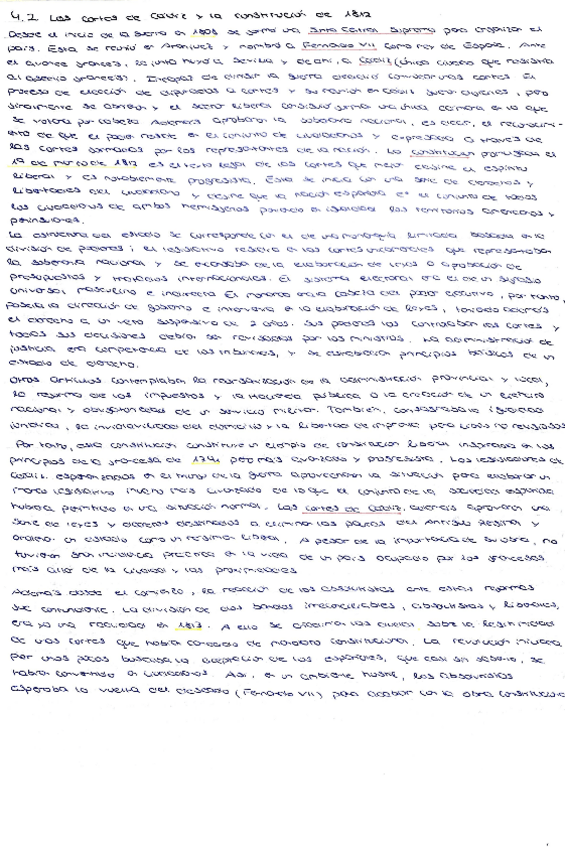 4.2 Las cortes de Cádiz y la constitución de 1812
Desde el inicio de la Guerra en 1808 se formó una Junta Central Suprema para organizar el
país. Esta se reunió en Aranjuez y nombró a Fernando VII como rey de España. Ante
el avance francés, la junta huyó a Sevilla y de ahí, a Cádiz (única ciudad que resistiría
al asedio francés). Incapaz de dirigir la guerra decidió convocar unas cortes. El
proceso de elección de diputados a cortes y su reunión en Cádiz fueron difíciles, pero
finalmente se abrieron y el sector liberal consiguió formar una única cámara en la que
se votara por cabeza. Además aprobaron la soberanía nacional, es decir, el reconocimi-
ento de que el poder reside en el conjunto de ciudadanos y expresado a través de
las cortes formadas por los representantes de la nación. La constitución promulgada el
19 de marzo de 1812 es el texto legal de las cortes que mejor define el espíritu
liberal y es notablemente progresista. Esta se inicia con una serie de derechos y
libertades del ciudadano y define que la nación española es el conjunto de todos
los ciudadanos de ambos hemisferios poniendo en igualdad los territorios americanos y
peninsulares.
La estructura del estado se corresponde con el de una monarquía limitada basada en la
división de poderes; el legislativo residiría en las cortes unicamerales que representaban
la soberanía nacional y se encargaba de la elaboración de leyes o aprobación de
presupuestos y tratados internacionales. El sistema electoral era el de un sufragio
universal masculino e indirecto. El monarca era la cabeza del poder ejecutivo, por tanto,
poseía la dirección de gobierno e intervenía en la elaboración de leyes, teniendo además
el derecho a un veto suspensivo de 2 años. Sus poderes los controlaban las cortes y
todas sus decisiones debían ser revisadas por los ministros. La administración de
justicia era competencia de los tribunales, y se establecían principios básicos de un
estado de derecho.
Otros artículos contemplaban la reorganización de la administración provincial y local,
la reforma de los impuestos y la Hacienda pública o la creación de un ejército
nacional y obligatoriedad de un servicio militar. También, consagraba la igualdad
jurídica, la inviolabilidad del domicilio y la libertad de imprenta para libros no religiosos.
Por tanto, esta constitución constituye un ejemplo de constitución liberal inspirada en los
principios de la francesa de 1791 pero más avanzado y progresista. Los legisladores de
Cádiz aprovecharon la situación para elaborar un
marco legislativo mucho más avanzado de lo que el conjunto de la sociedad española
hubiera permitido en una situación normal. Las cortes de Cádiz, además aprobaron una
serie de leyes y decretos destinados a eliminar los pilares del Antiguo Régimen y
ordenar un estado como un régimen liberal. A pesar de la importancia de su obra, no
tuvieron gran incidencia práctica en la vida de un país ocupado por los franceses,
más allá de la ciudad y las proximidades.
Además desde el comienzo, la reacción de los absolutistas ante estas reformas
fue contundente. La división de dos bandos irreconciliables, absolutistas y liberales,
era ya una realidad en 1813. A ello se añadían las dudas sobre la legitimidad
de unas cortes que habían carecido de mandato constitucional. La revolución iniciada
por unos pocos buscaba la aceptación de los españoles, que casi sin desearlo, se
habían convertido en ciudadanos. Así, en un ambiente hostil, los absolutistas
esperaban la vuelta del deseado (Fernando VII) para acabar con la obra constitucional